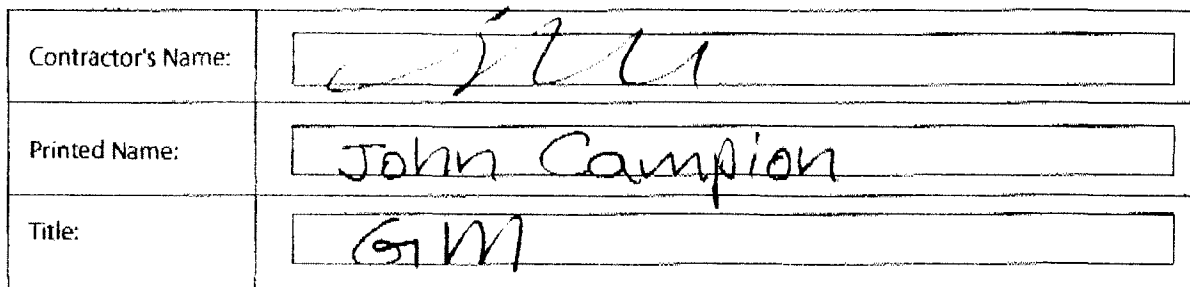 Contractor's Name:
Printed Name: John Campion
Title: GM